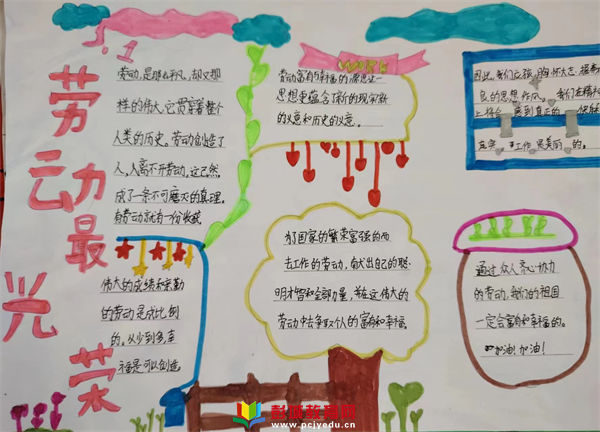 5.1
劳动最光荣
劳动,是那么平凡,却又想
样的伟大,它贯穿着整个
人类的历史。劳动创造了
人,人离不开劳动,这已然
成了一条不可磨灭的真理。
有劳动就有一份收获
劳动富有与幸福的源泉这一
思想更蕴含了新的现实
的义意和历史的义意。
因此,我们应该胸怀大志,
良的思想作风。我们在精神
上将会
真实。
工作是美丽的。
伟大的成绩和辛勤
的劳动是成比例
的。从少到多,幸
福是可以创造
为了国家的繁荣富强的而
去工作的劳动,奋大出自己的聪
明才智和全部力量,并在这伟大的
劳动中去争取个人的富有和幸福。
通过众人齐心协力
的劳动,我们的祖国
一定会富有和幸福的。
加油!加油!
彭质教育网
www.pcjyedu.cn